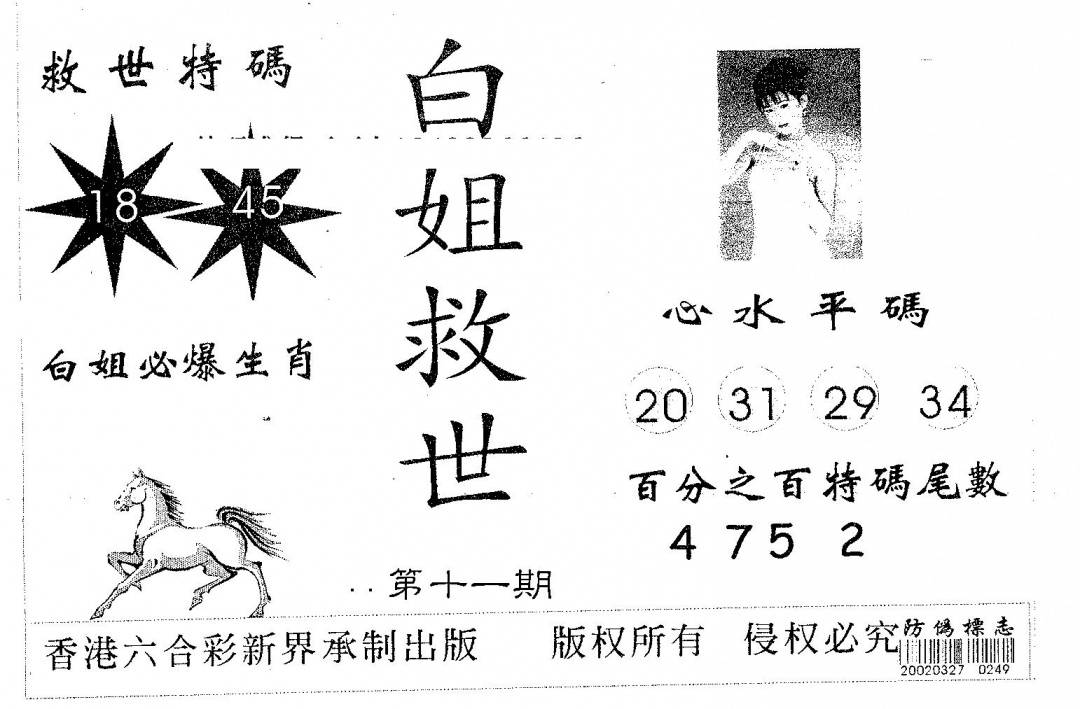 救世特碼
18 45
白姐必爆生肖
白姐救世
第十一期
心水平碼
20 31 29 34
百分之百特碼尾數
4 7 5 2
香港六合彩新界承制出版 版权所有 侵权必究
防偽標志
20020327 0249